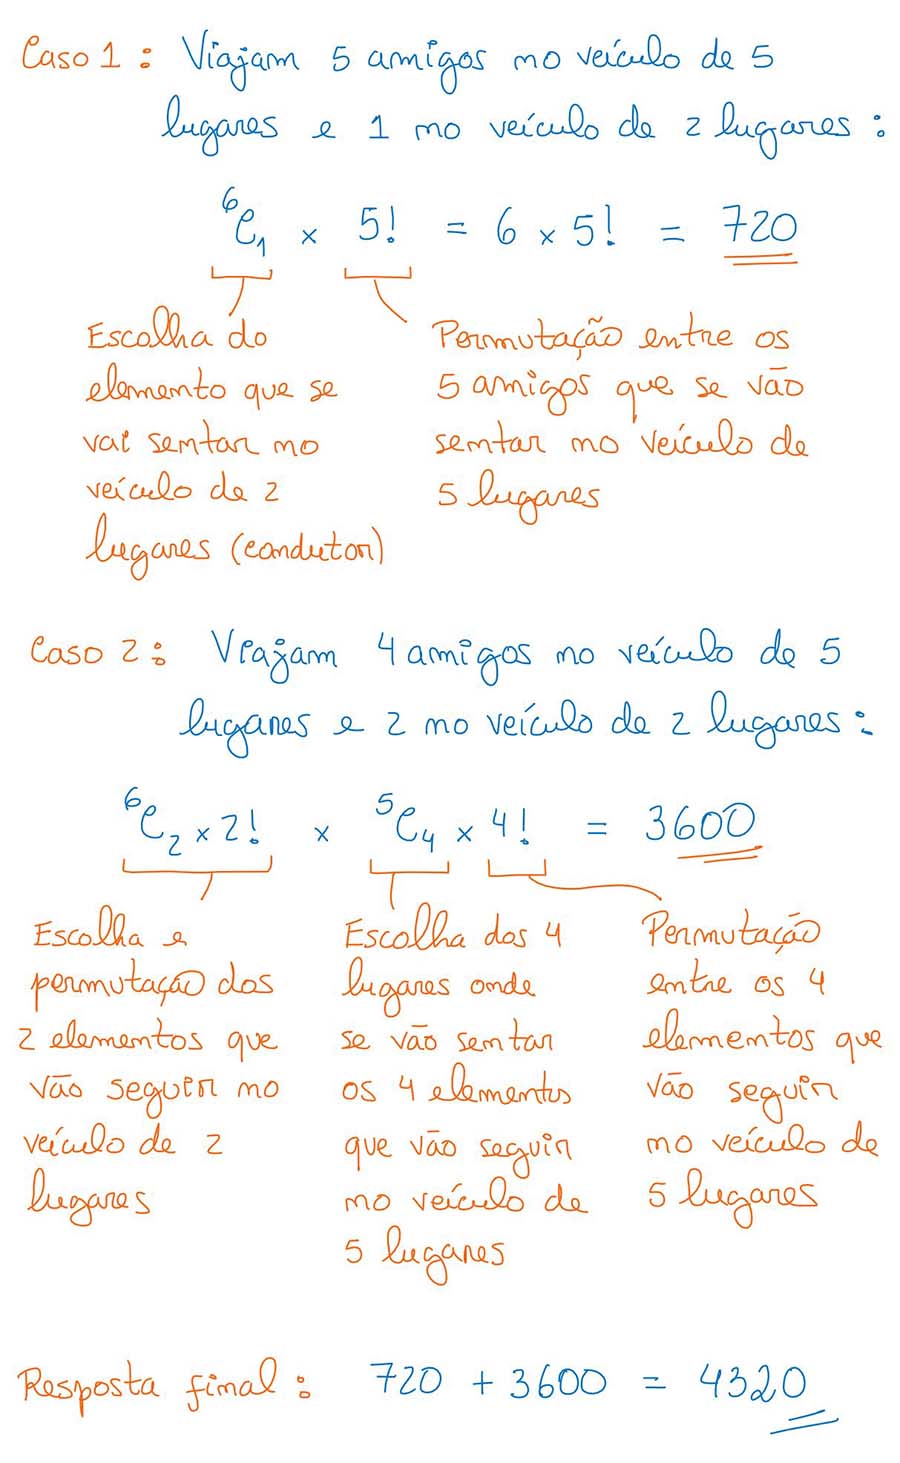 Caso 1: Viajam 5 amigos no veículo de 5
lugares e 1 no veículo de 2 lugares:
⁶C₁ × 5! = 6 × 5! = 720
Escolha do
elemento que se
vai sentar no
veículo de 2
lugares (condutor)
Permutação entre os
5 amigos que se vão
sentar no veículo de
5 lugares
Caso 2: Viajam 4 amigos no veículo de 5
lugares e 2 no veículo de 2 lugares:
⁶C₂ × 2! × ⁵C₄ × 4! = 3600
Escolha e
permutação dos
2 elementos que
vão seguir no
veículo de 2
lugares
Escolha dos 4
lugares onde
se vão sentar
os 4 elementos
que vão seguir
no veículo de
5 lugares
Permutação
entre os 4
elementos que
vão seguir
no veículo de
5 lugares
Resposta final: 720 + 3600 = 4320